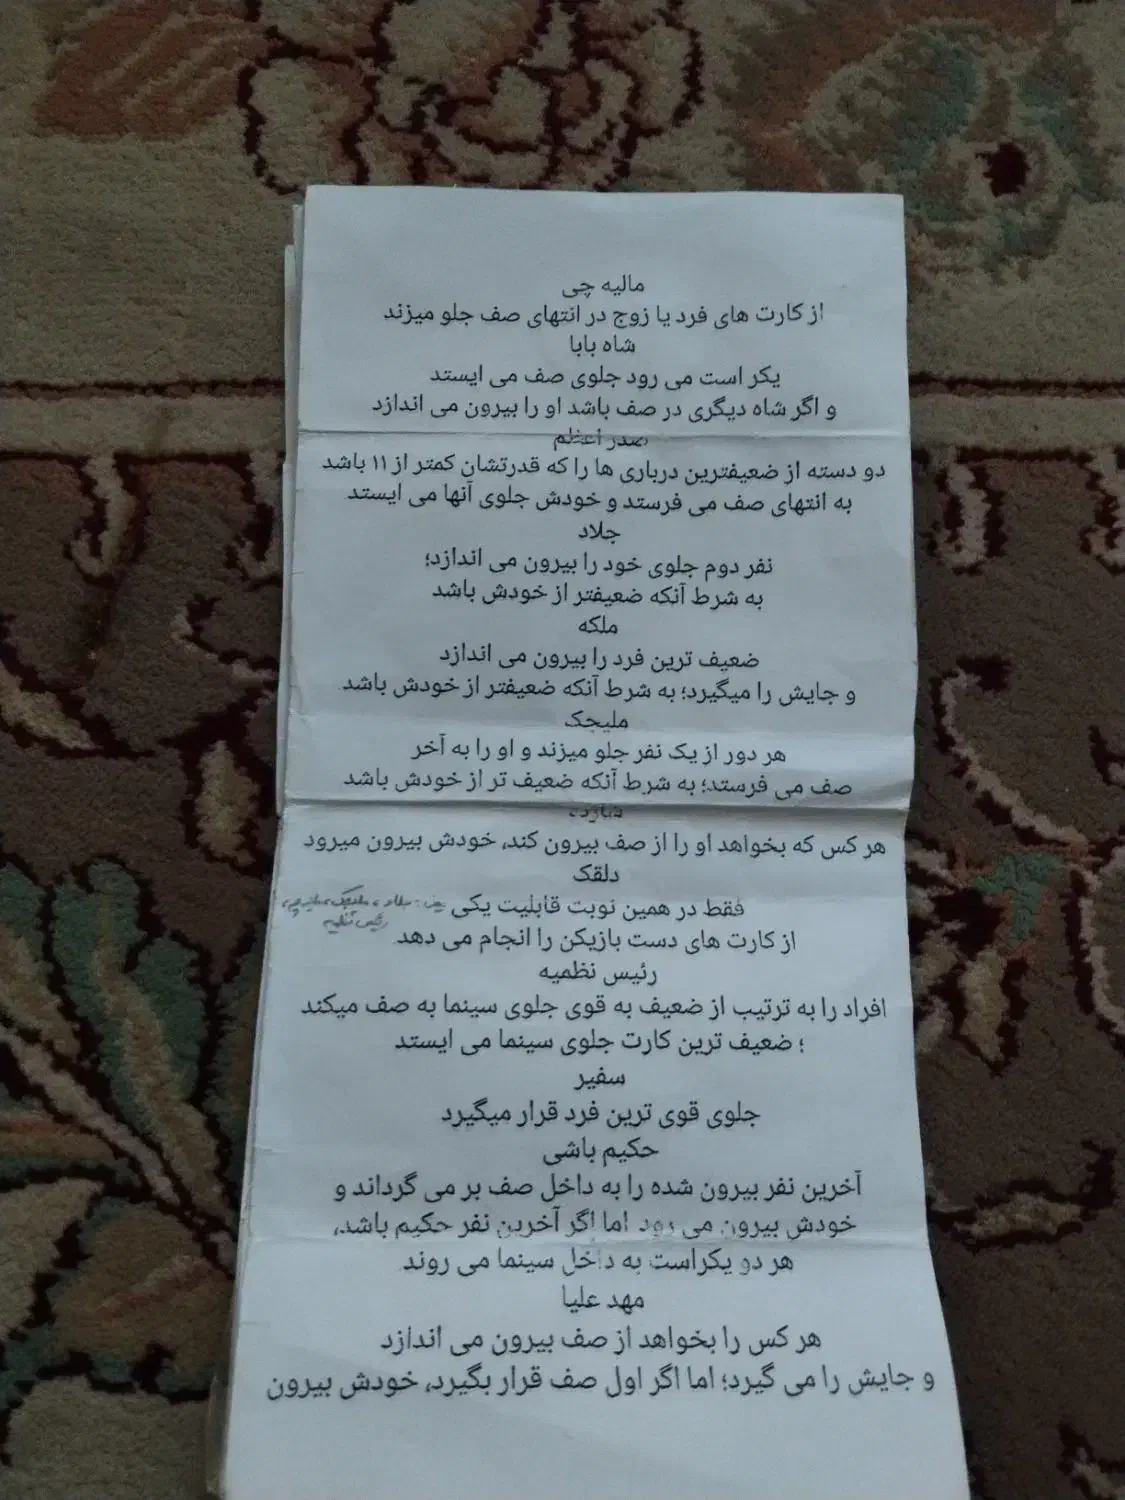 مالیه چی
از کارت های فرد یا زوج در انتهای صف جلو میزند
شاه بابا
یکر است می رود جلوی صف می ایستد
و اگر شاه دیگری در صف باشد او را بیرون می اندازد
صدر اعظم
دو دسته از ضعیفترین درباری ها را که قدرتشان کمتر از ۱۱ باشد
به انتهای صف می فرستد و خودش جلوی آنها می ایستد
جلاد
نفر دوم جلوی خود را بیرون می اندازد؛
به شرط آنکه ضعیفتر از خودش باشد
ملکه
ضعیف ترین فرد را بیرون می اندازد
و جایش را میگیرد؛ به شرط آنکه ضعیفتر از خودش باشد
ملیجک
هر دور از یک نفر جلو میزند و او را به آخر
صف می فرستد؛ به شرط آنکه ضعیف تر از خودش باشد
شازده
هر کس که بخواهد او را از صف بیرون کند، خودش بیرون میرود
دلقک
فقط در همین نوبت قابلیت یکی
از کارت های دست بازیکن را انجام می دهد
رئیس نظمیه
افراد را به ترتیب از ضعیف به قوی جلوی سینما به صف میکند
؛ ضعیف ترین کارت جلوی سینما می ایستد
سفیر
جلوی قوی ترین فرد قرار میگیرد
حکیم باشی
آخرین نفر بیرون شده را به داخل صف بر می گرداند و
خودش بیرون می رود اما اگر آخرین نفر حکیم باشد،
هر دو یکراست به داخل سینما می روند
مهد علیا
هر کس را بخواهد از صف بیرون می اندازد
و جایش را می گیرد؛ اما اگر اول صف قرار بگیرد، خودش بیرون